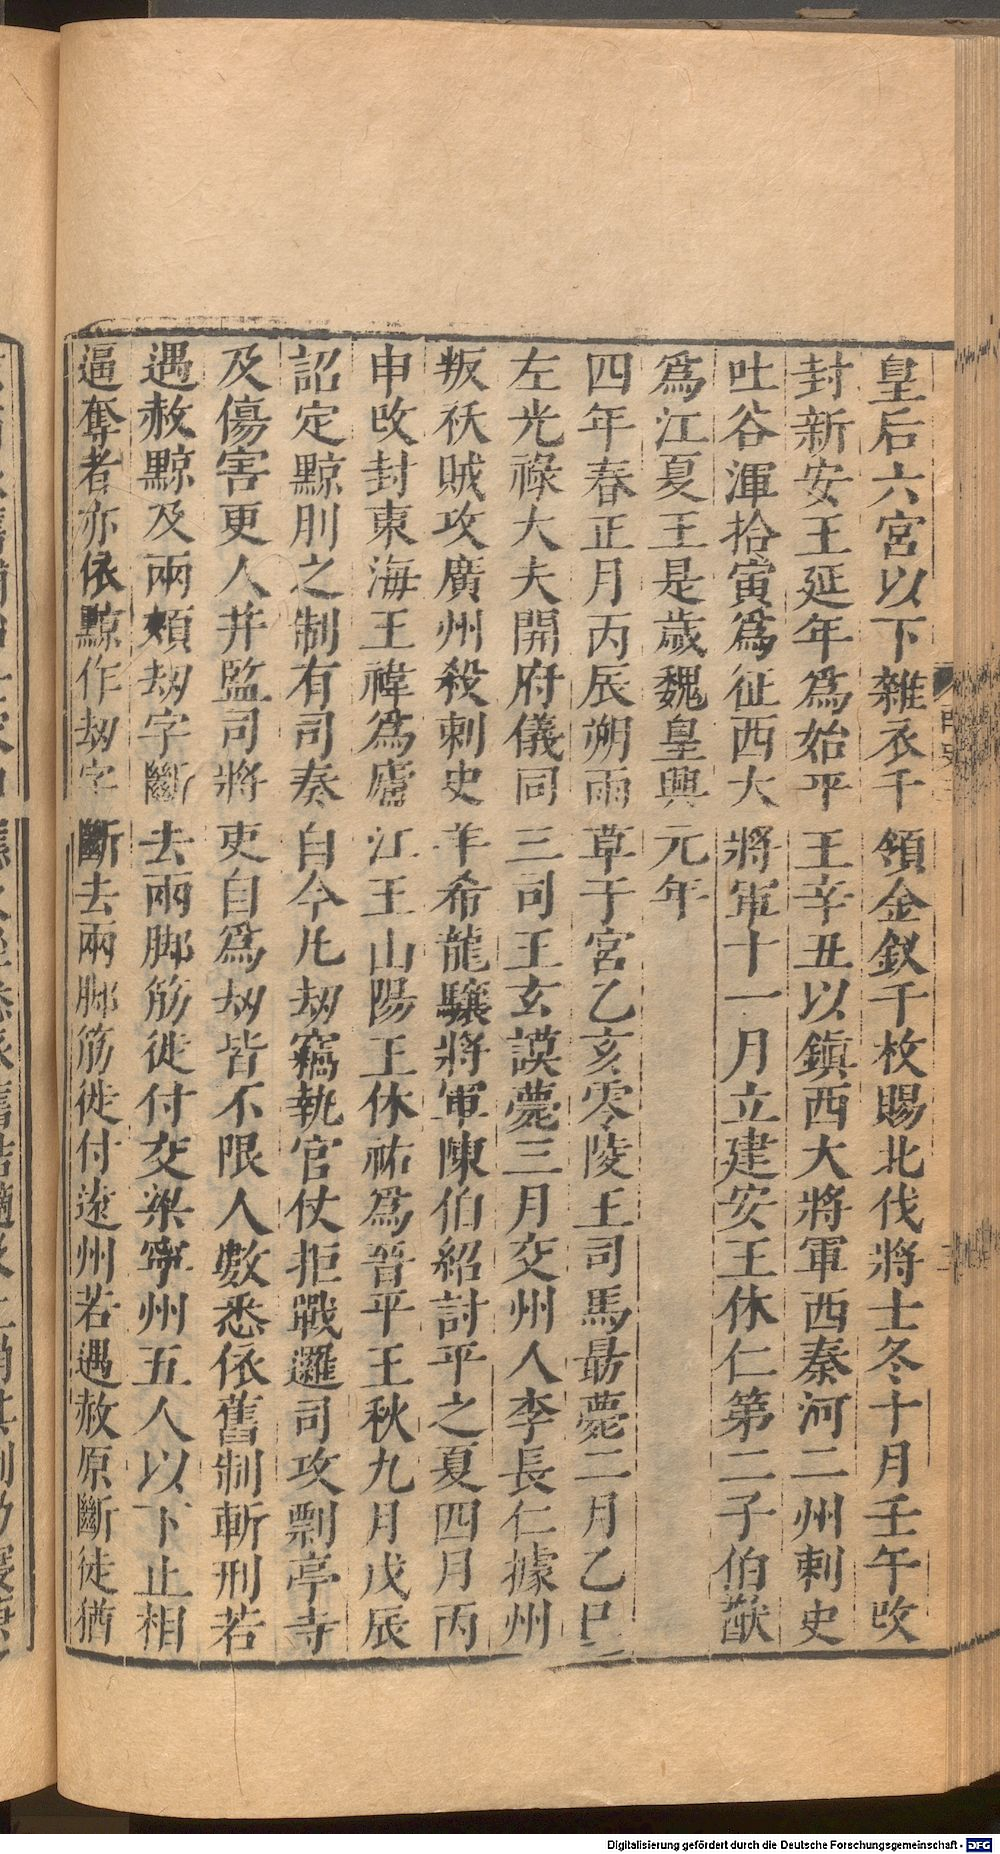 皇后六宮以下雜衣千領金釵千枚賜北伐將士冬十月壬午改
封新安王延年爲始平王辛丑以鎮西大將軍西秦河二州刺史
吐谷渾拾寅爲征西大將軍十一月立建安王休仁第二子伯猷
爲江夏王是歲魏皇興元年
四年春正月丙辰朔雨草于宮乙亥零陵王司馬勗薨二月乙巳
左光祿大夫開府儀同三司王玄謨薨三月交州人李長仁據州
叛祆賊攻廣州殺刺史羊希龍驤將軍陳伯紹討平之夏四月丙
申改封東海王禕爲廬江王山陽王休祐爲晉平王秋九月戊辰
詔定黥刖之制有司奏自今凡劫竊執官仗拒戰邏司攻剽亭寺
及傷害吏人并監司將吏自爲劫皆不限人數悉依舊制斬刑若
遇赦黥及兩頰劫字斷去兩脚筋徙付交梁寧州五人以下止相
逼奪者亦依黥作劫字斷去兩脚筋徙付遠州若遇赦原斷徒猶
Digitalisierung gefördert durch die Deutsche Forschungsgemeinschaft - DFG